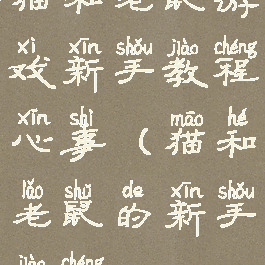 猫和老鼠游
xì xīn shǒu jiào chéng
戏新手教程
xīn shì māo hé
心事（猫和
lǎo shǔ de xīn shǒu
老鼠的新手
jiào chéng